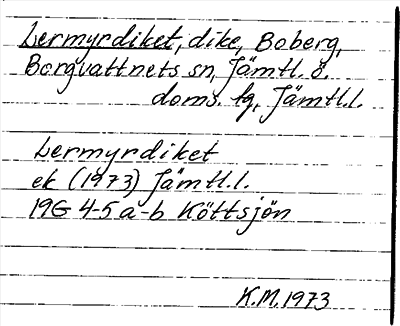 Lermyrdiket, dike, Boberg,
Borgvattnets sn, Jämtl. ö.
doms. lg, Jämtl.l.
Lermyrdiket
ek (1973) Jämtl.l.
19G 4-5 a-b Köttsjön
K.M. 1973